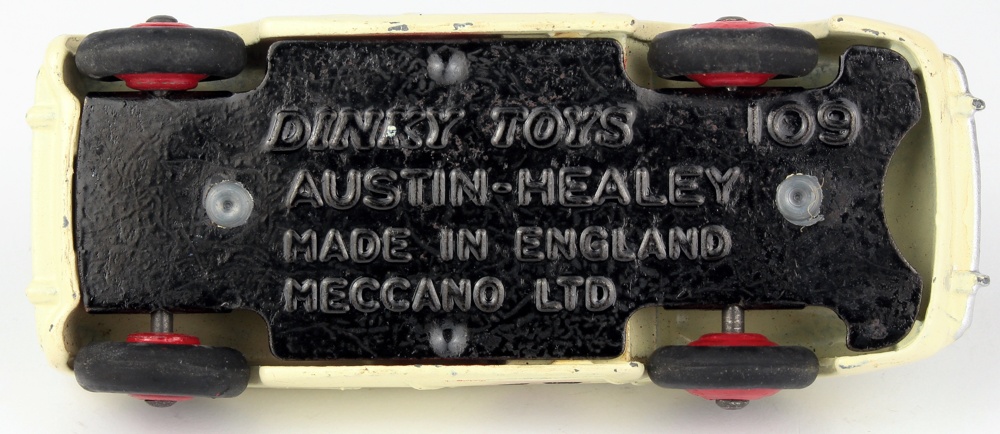 DINKY TOYS 109
AUSTIN-HEALEY
MADE IN ENGLAND
MECCANO LTD